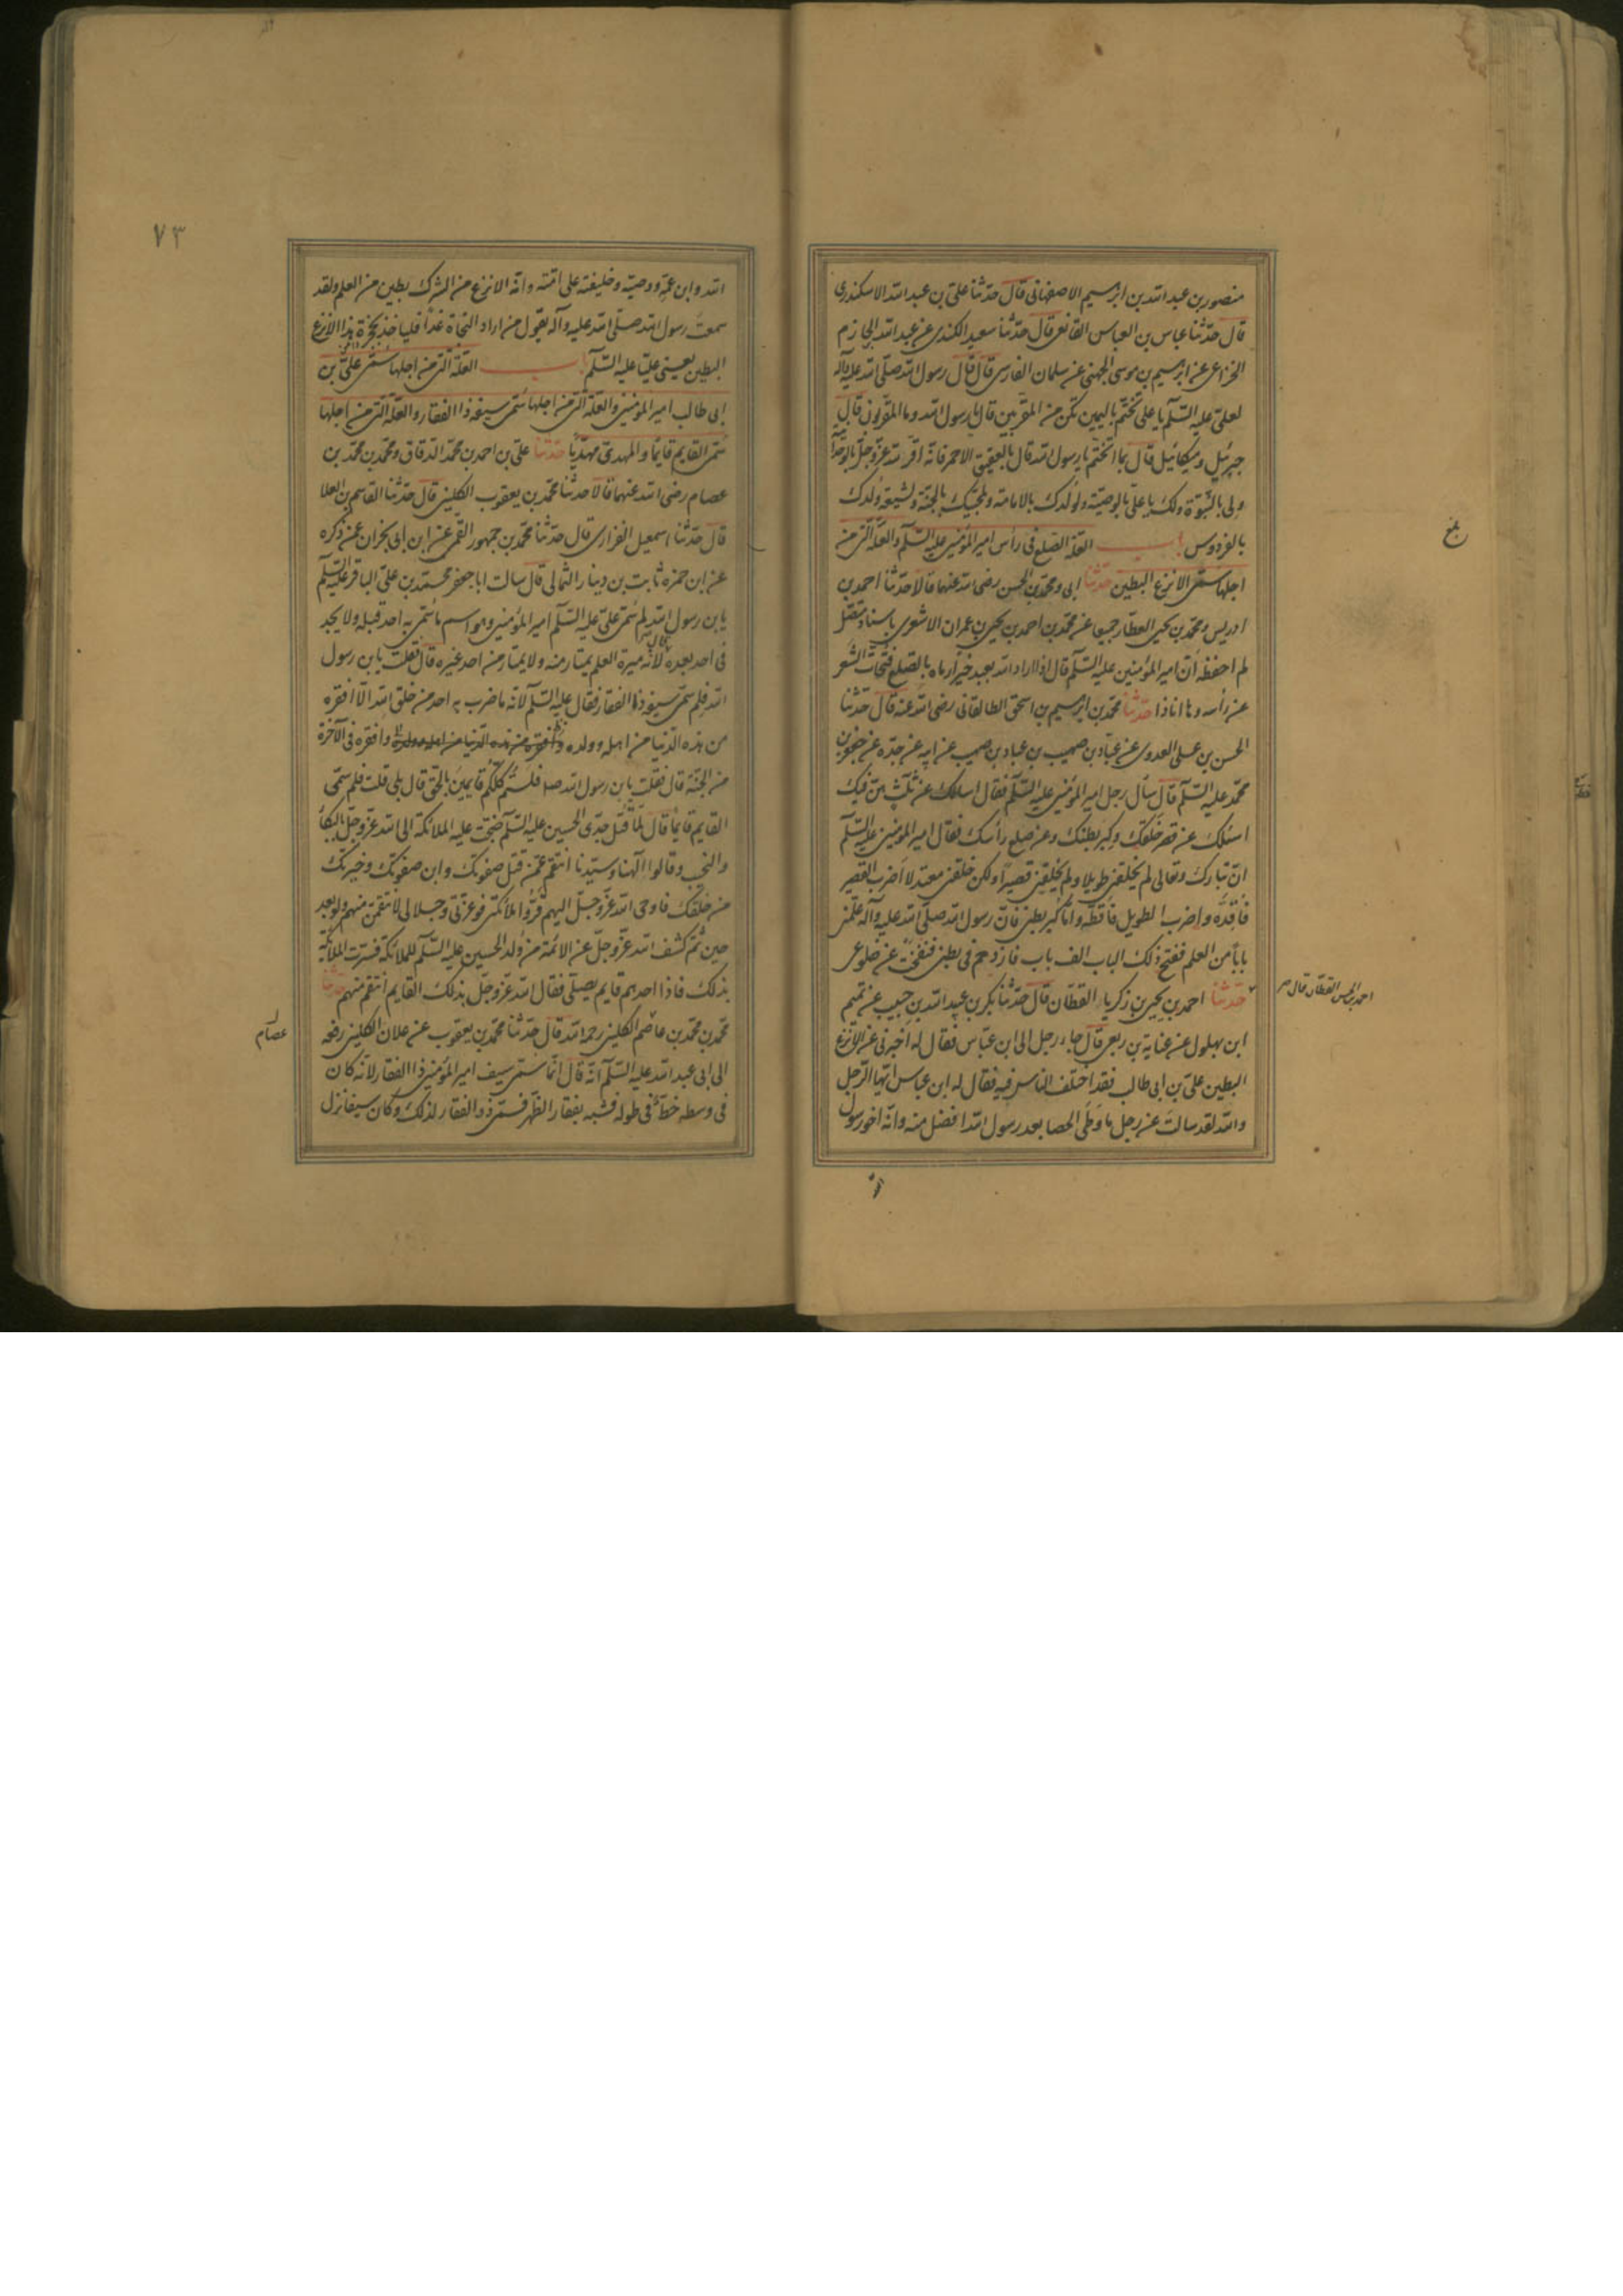 منصور بن عبد الله بن ابرهيم الاصفهانى قال حدثنا على بن عبد الله الاسكندرى
قال حدثنا عباس بن العباس القانعى قال حدثنا سعيد الكندى عن عبد الله الحازم
الخزاعى عن ابرهيم بن موسى الجهنى عن سلمان الفارسى قال قال رسول الله صلى الله عليه وآله
لعلى عليه السلام يا على تختم باليمين تكن من المقربين قال يا رسول الله وما المقربون قال
جبرئيل وميكائيل قال بما اتختم يا رسول الله قال بالعقيق الاحمر فانه اقر لله عز وجل بالوحدانية
ولى بالنبوة ولك يا على بالوصية ولولدك بالامامة ولمحبيك بالجنة ولشيعة ولدك
بالفردوس باب العلة الصلع فى رأس امير المؤمنين عليه السلام والعلة التى من
اجلها سمى الانزع البطين حدثنا ابى ومحمد بن الحسن رضى الله عنهما قالا حدثنا احمد بن
ادريس ومحمد بن يحيى العطار جميعا عن محمد بن احمد بن يحيى بن عمران الاشعرى باسناد متصل
لم احفظه ان امير المؤمنين عليه السلام قال اذا اراد الله بعبد خيرا رماه بالصلع فتحات الشعر
عن رأسه وها انا ذا حدثنا محمد بن ابرهيم بن اسحق الطالقانى رضى الله عنه قال حدثنا
الحسن بن على العدوى عن عباد بن صهيب بن عباد بن صهيب عن ابيه عن جده عن جعفر بن
محمد عليه السلام قال سأل رجل امير المؤمنين عليه السلام فقال اسئلك عن ثلث هن فيك
اسئلك عن قصر خلقك وكبر بطنك وعن صلع رأسك فقال امير المؤمنين عليه السلام
ان تبارك وتعالى لم يخلقنى طويلا ولم يخلقنى قصيرا ولكن خلقنى معتدلا اضرب القصير
فاقده واضرب الطويل فاقطه واما كبر بطنى فان رسول الله صلى الله عليه وآله علمنى
بابا من العلم ففتح ذلك الباب الف باب فازدحم فى بطنى فنفخت عن ضلوعى
حدثنا احمد بن يحيى بن زكريا القطان قال حدثنا بكر بن عبد الله بن حبيب عن تميم
ابن بهلول عن عباية بن ربعى قال جاء رجل الى ابن عباس فقال له اخبرنى عن الانزع
البطين على بن ابى طالب فقد اختلف الناس فيه فقال له ابن عباس ايها الرجل
والله لقد سالت عن رجل ما وطى الحصا بعد رسول الله افضل منه وانه اخو رسول
بلغ
احمد بن الحسن القطان قال
٧٣
الله وابن عمه ووصيه وخليفته على امته وانه الانزع من الشرك بطين من العلم ولقد
سمعت رسول الله صلى الله عليه وآله يقول من اراد النجاة غدا فلياخذ بحجزة هذا الانزع
البطين يعنى عليا عليه السلام باب العلة التى من اجلها سمى على بن
ابى طالب امير المؤمنين والعلة التى من اجلها سمى سيفه ذا الفقار والعلة التى من اجلها
سمى القايم قايما والمهدى مهديا حدثنا على بن احمد بن محمد الدقاق ومحمد بن محمد بن
عصام رضى الله عنهما قالا حدثنا محمد بن يعقوب الكلينى قال حدثنا القاسم بن العلا
قال حدثنا اسمعيل الفزارى قال حدثنا محمد بن جمهور القمى عن ابن ابى نجران عمن ذكره
عن ابى حمزه ثابت بن دينار الثمالى قال سالت ابا جعفر محمد بن على الباقر عليه السلم
يا بن رسول الله لم سمى على عليه السلام امير المؤمنين وهو اسم ما سمى به احد قبله ولا يجد
فى احد بعده قال لانه ميرة العلم يمتار منه ولا يمتار من احد غيره قال فقلت يا بن رسول
الله فلم سمى سيفه ذا الفقار فقال عليه السلام لانه ما ضرب به احد من خلق الله الا افقره
من هذه الدنيا من اهله وولده وافقره من هذه الدنيا من اهله وولده وافقره فى الآخرة
من الجنة قال فقلت يا بن رسول الله صلا فلستم كلكم قايمين بالحق قال بلى قلت فلم سمى
القايم قايما قال لما قتل جدى الحسين عليه السلام ضجت عليه الملائكة الى الله عز وجل بالبكاء
والنحيب وقالوا آلهنا وسيدنا انتقم عمن قتل صفوتك وابن صفوتك وخيرتك
من خلقك فاوحى الله عز وجل اليهم قروا ملائكتى فوعزتى وجلالى لانتقمن منهم ولو بعد
حين ثم كشف الله عز وجل عن الائمة من ولد الحسين عليه السلام للملائكة فسرت الملائكة
بذلك فاذا احدهم قايم يصلى فقال الله عز وجل بذلك القايم انتقم منهم حدثنا
محمد بن محمد بن عاصم الكلينى رحمه الله قال حدثنا محمد بن يعقوب عن علان الكلينى رفعه
الى ابى عبد الله عليه السلام انه قال انما سمى سيف امير المؤمنين ذا الفقار لانه كان
فى وسطه خط فى طوله فشبه بفقار الظهر فسمى ذو الفقار لذلك وكان سيفا نزل
عصام